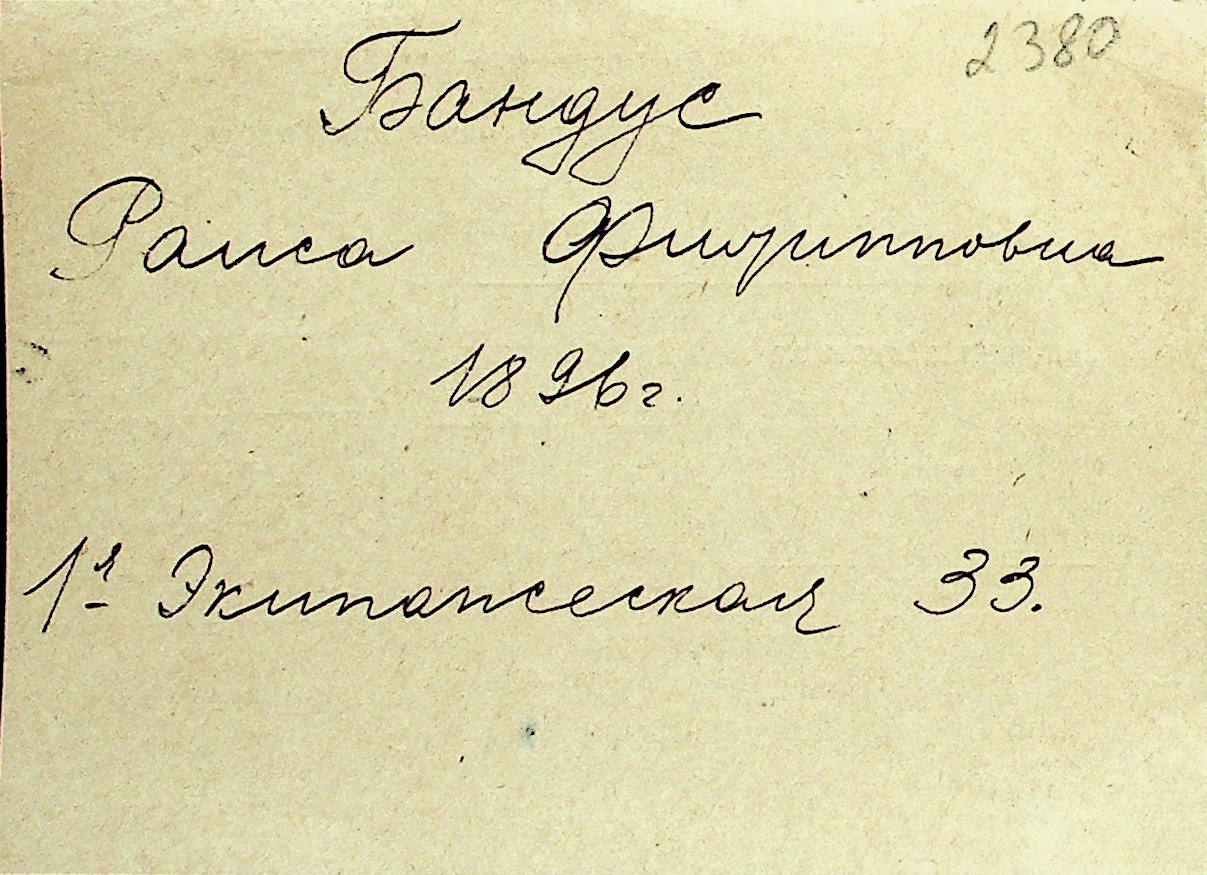 2380
Бандус
Раиса Филипповна
1896г.
1я Экипажеская 33.